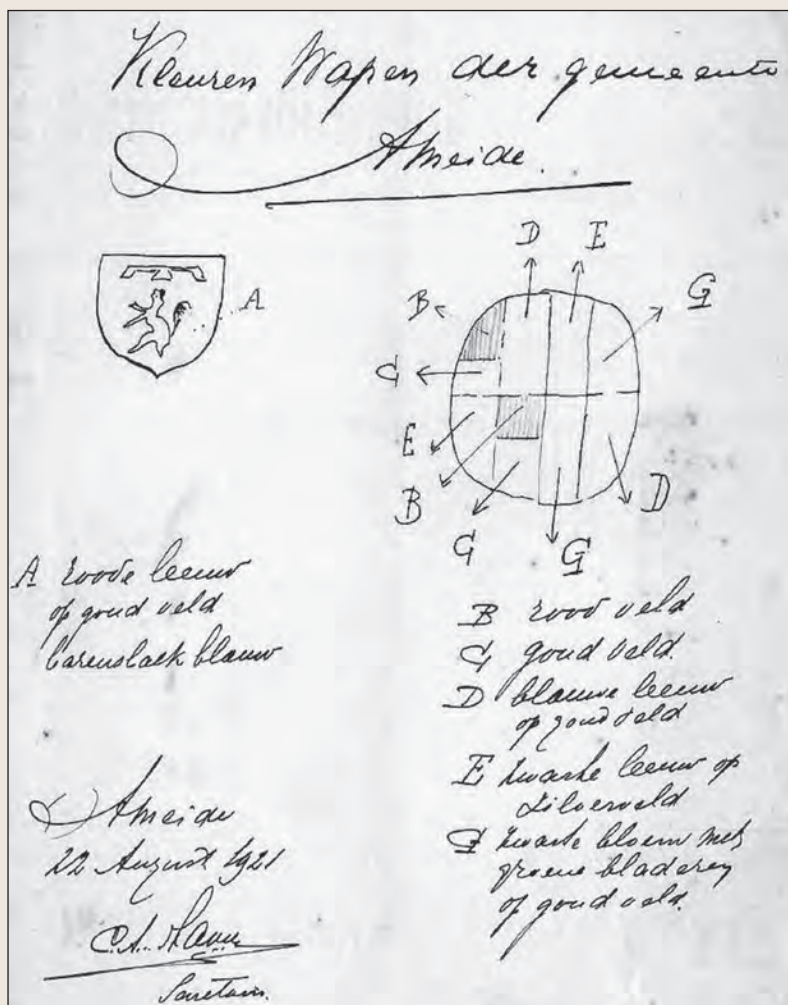 Kleuren Wapen der gemeente
Ameide.
A
D
E
B
G
C
E
B
C
G
D
A roode leeuw
op goud veld
barenslack blauw
B rood veld
C goud veld.
D blauwe leeuw
op goud veld
E zwarte leeuw op
zilverveld
G zwarte bloem met
groene bladeren
op goud veld.
Ameide
22 August 1921